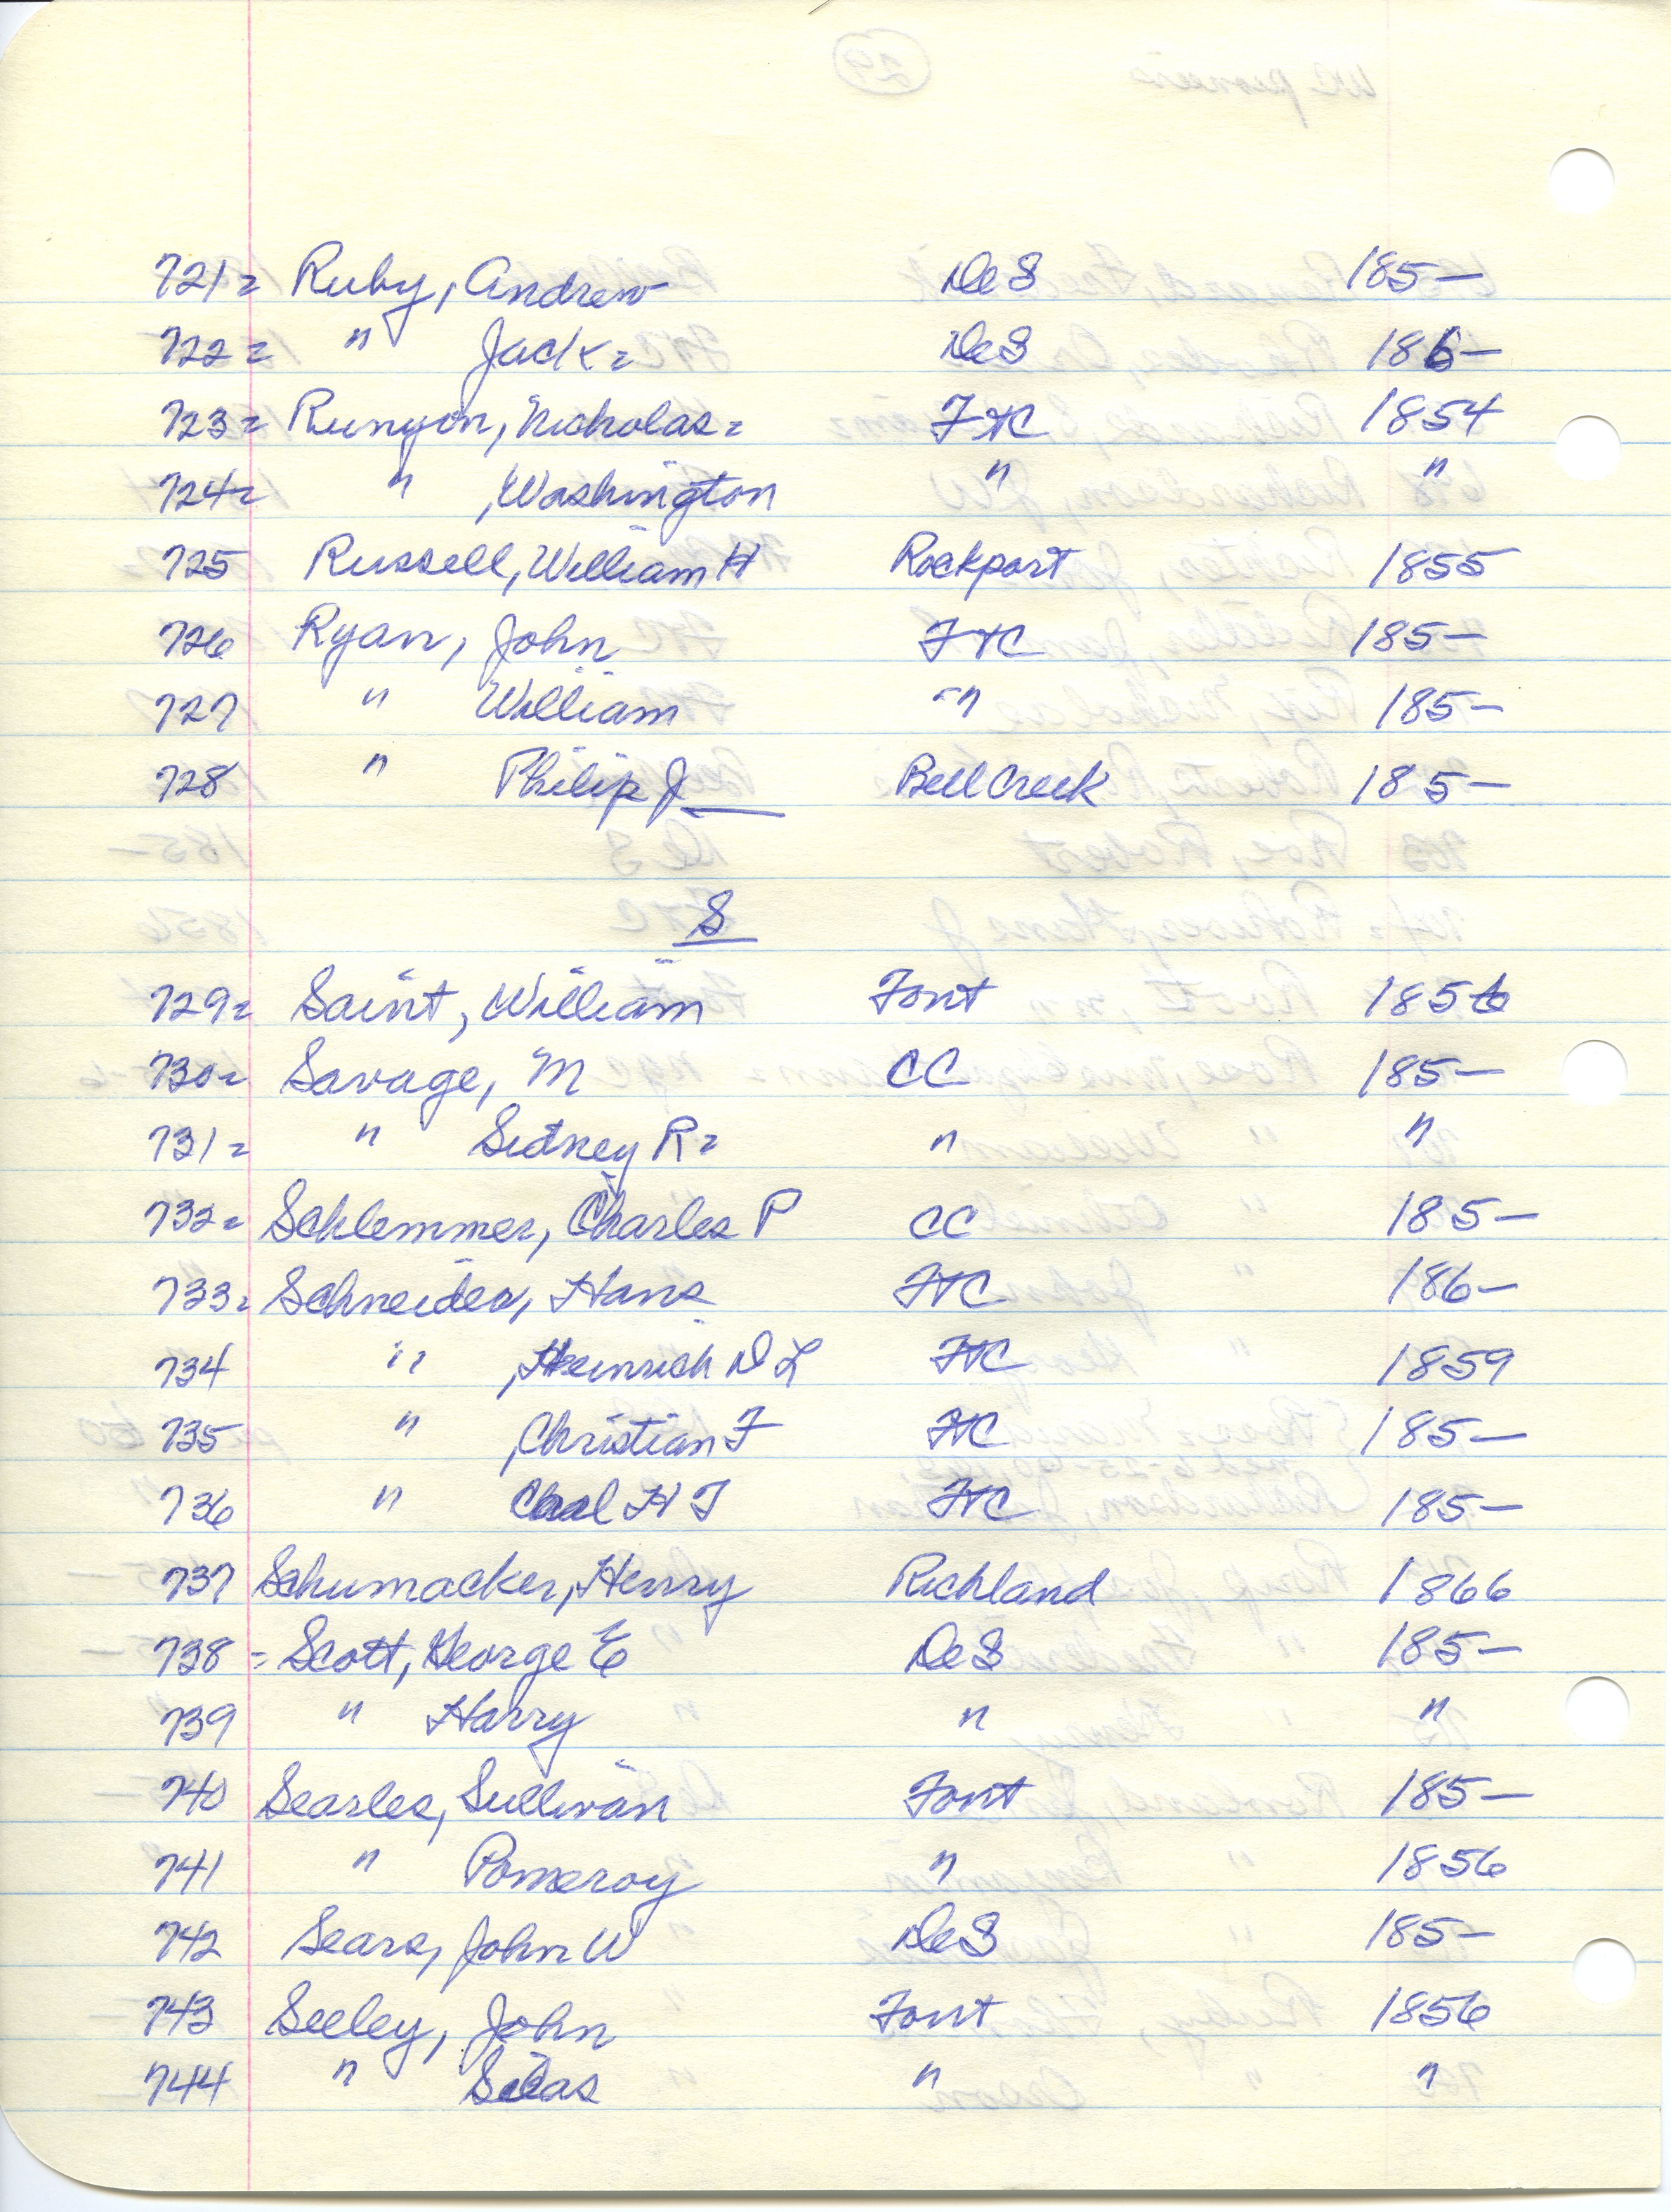 721= Ruby, Andrew DeS 185-
722= " Jack= DeS 186-
723= Runyon, Nicholas= FtC 1854
724= " , Washington " "
725 Russell, William H Rockport 1855
726 Ryan, John FtC 185-
727 " William " 185-
728 " Philip J Bell Creek 185-
S
729= Saint, William Font 1856
730= Savage, M CC 185-
731= " Sidney R= " "
732= Schlemmer, Charles P CC 185-
733= Schneider, Hans FtC 186-
734 " , Heinrich D L FtC 1859
735 " , Christian F FtC 185-
736 " Carl H T FtC 185-
737 Schumacker, Henry Richland 1866
738 = Scott, George E DeS 185-
739 " Harry " "
740 Searles, Sullivan Font 185-
741 " Pomeroy " 1856
742 Sears, John W DeS 185-
743 Seeley, John Font 1856
744 " Silas " "